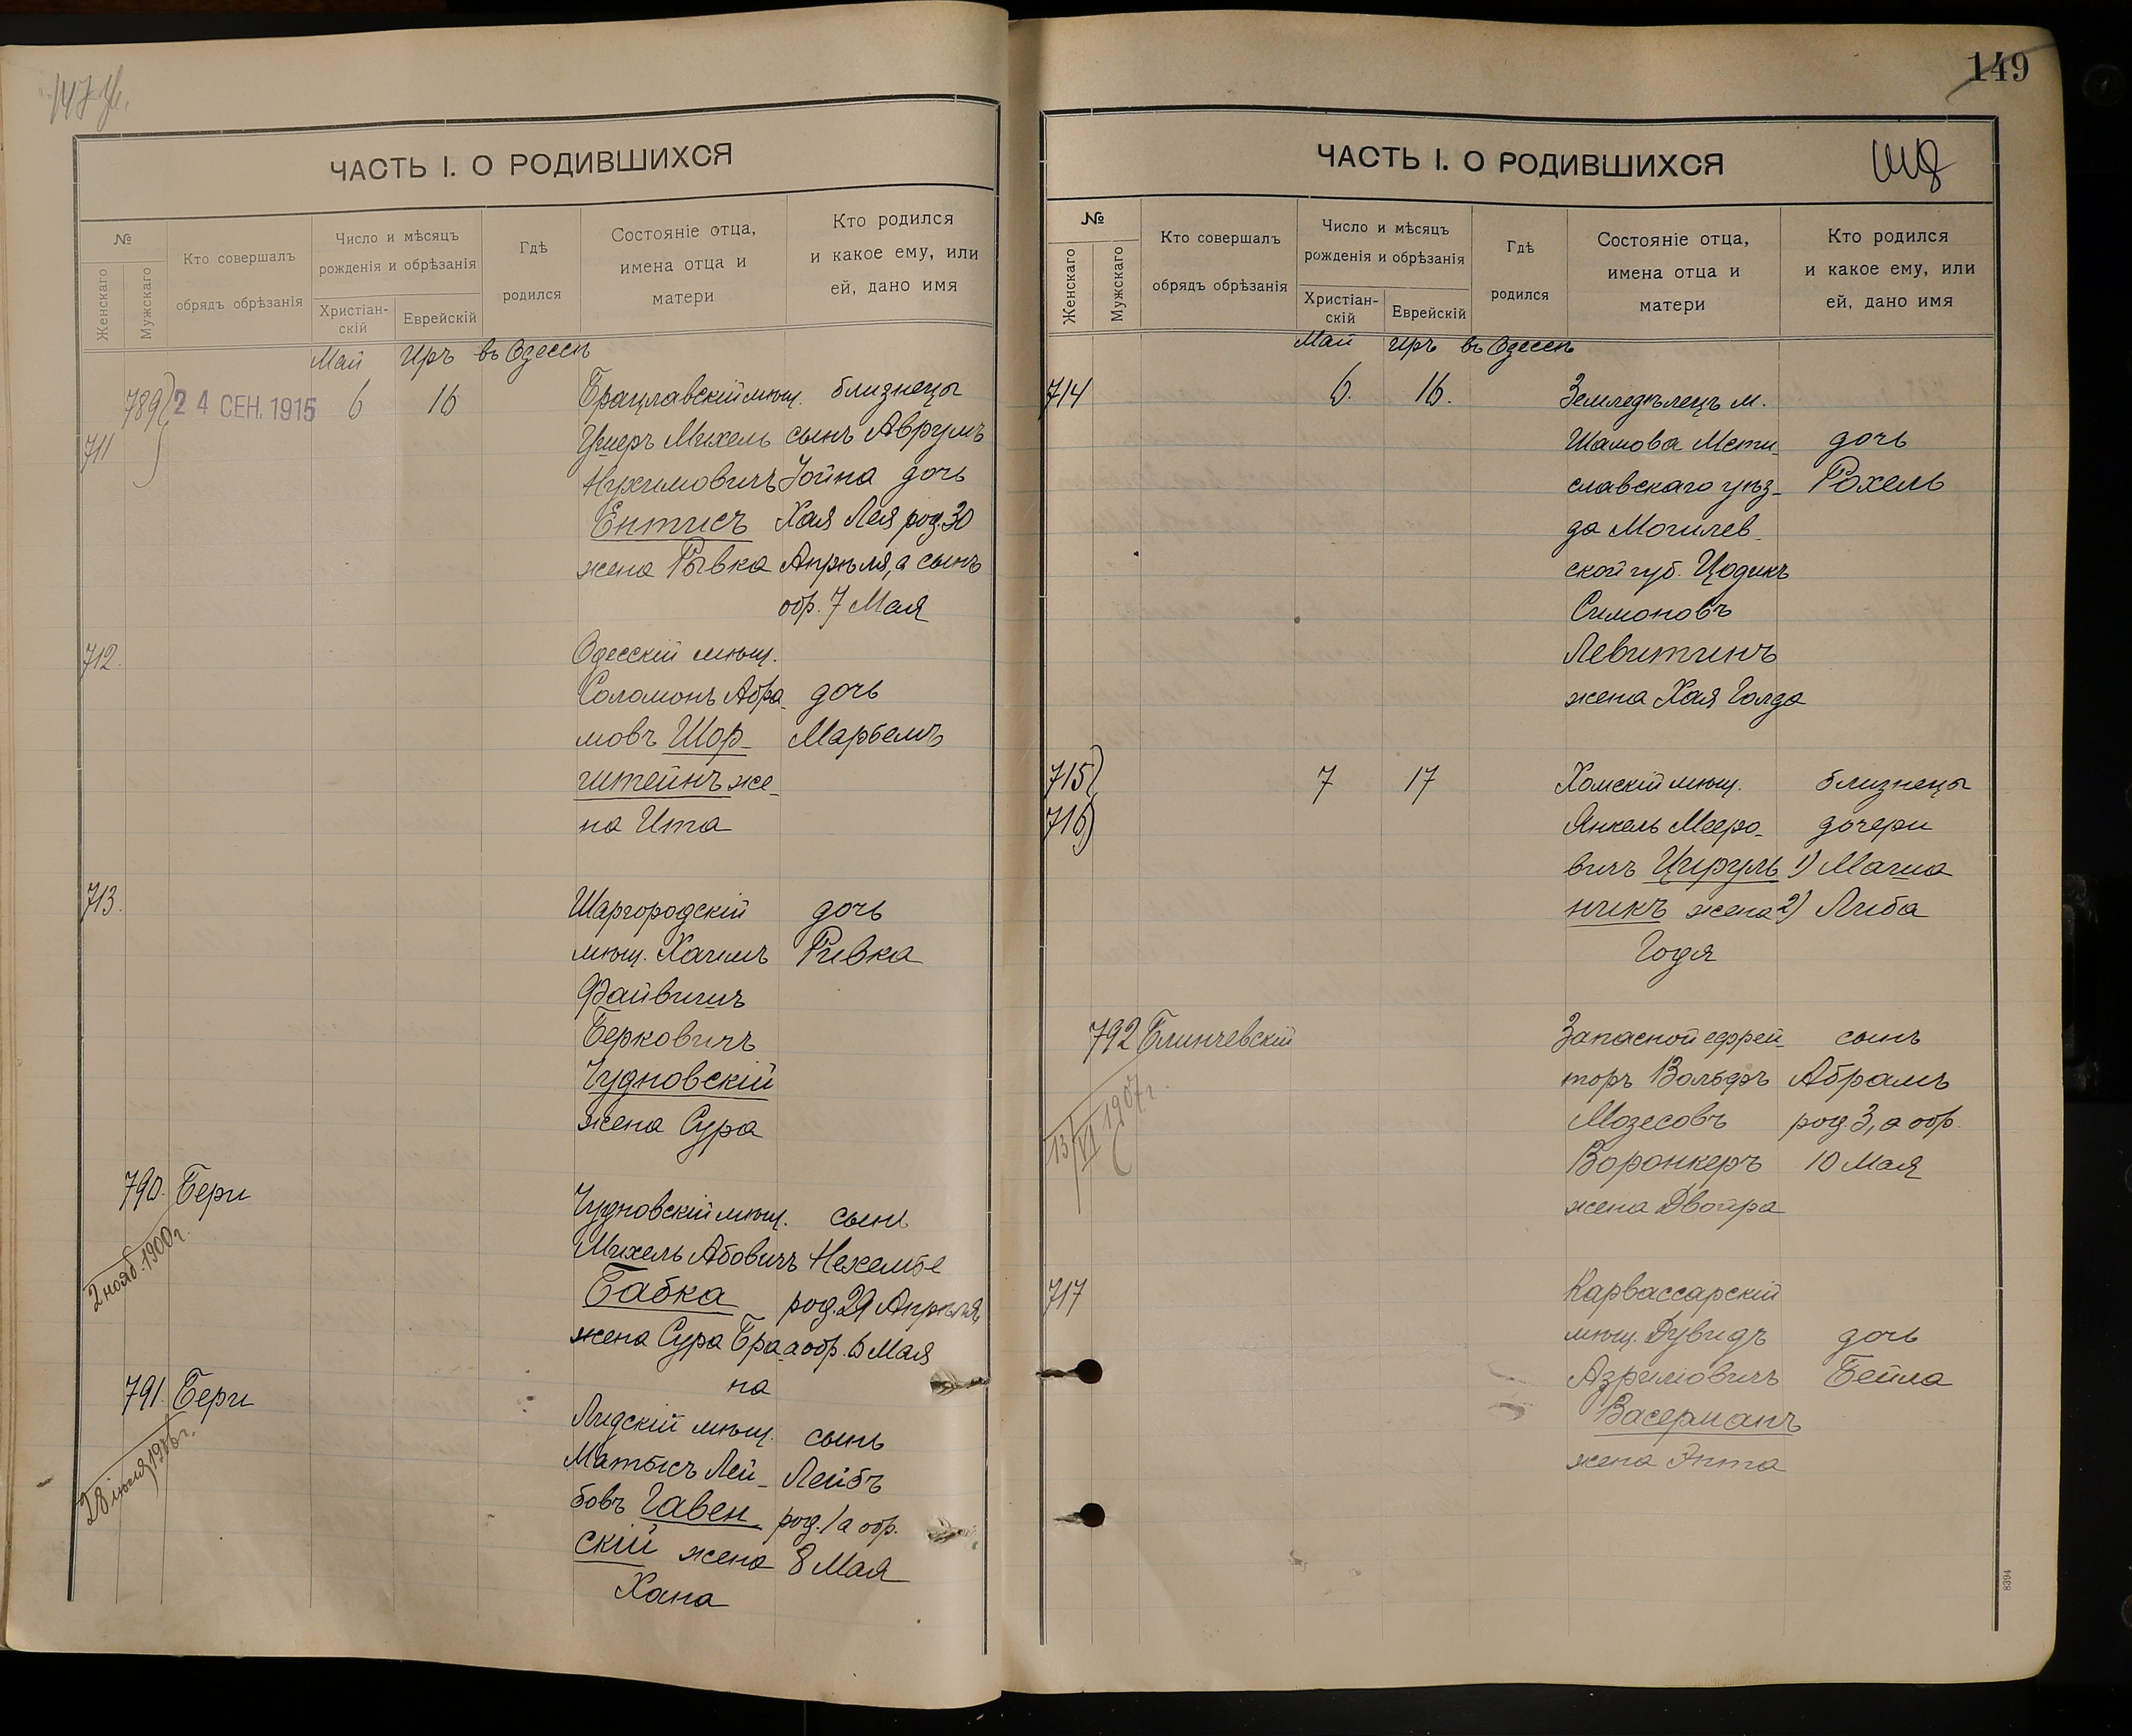 ЧАСТЬ I. О РОДИВШИХСЯ
№
Женскаго
Мужскаго
Кто совершалъ
обрядъ обрѣзанія
Число и мѣсяцъ
рожденія и обрѣзанія
Христіан-
скій
Еврейскій
Гдѣ
родился
Состояніе отца,
имена отца и
матери
Кто родился
и какое ему, или
ей, дано имя
Май Иръ въ Одессѣ
789 24 СЕН. 1915 6 16 Брацлавскій мѣщ. близнецы
711 Ушеръ Михель сынъ Аврумъ
Нухимовичъ Іойна дочь
Ентисъ Хая Лея род. 30
жена Рывка Апрѣля, а сынъ
обр. 7 Мая
712. Одесскій мѣщ.
Соломонъ Абра- дочь
мовъ Шор- Марьемъ
штейнъ же-
на Ита
713. Шаргородскій дочь
мѣщ. Хаимъ Ривка
Файвишъ
Берковичъ
Чудновскій
жена Сура
790. Бери Чудновскій мѣщ. сынъ
2 нояб. 1900 г. Михель Абовичъ Нехемье
Бабка род. 29 Апрѣля,
жена Сура Бра- а обр. 6 Мая
на
791. Бери Лидскій мѣщ. сынъ
Матысъ Лей- Лейбъ
бовъ Гавен- род. 1 а обр.
скій жена 8 Мая
Хана
149
ЧАСТЬ I. О РОДИВШИХСЯ
№
Женскаго
Мужскаго
Кто совершалъ
обрядъ обрѣзанія
Число и мѣсяцъ
рожденія и обрѣзанія
Христіан-
скій
Еврейскій
Гдѣ
родился
Состояніе отца,
имена отца и
матери
Кто родился
и какое ему, или
ей, дано имя
Май Иръ въ Одессѣ
714 6. 16. Земледѣлецъ м.
Шамова Мсти- дочь
славскаго уѣз- Рохель
да Могилев-
ской губ. Цодикъ
Симоновъ
Левитинъ
жена Хая Голда
715 7 17 Хомскій мѣщ. близнецы
716 Янкель Мееро- дочери
вичъ Цируль- 1) Маня
никъ жена 2) Либа
Годя
792 Блинчевскій Запасной ефрей- сынъ
торъ Вольфъ Абрамъ
13/VI 1907 г. Мозесовъ род. 3, а обр.
Воронкеръ 10 Мая
жена Двойра
717 Карвассарскій
мѣщ. Дувидъ дочь
Азриловичъ Бейла
Васерманъ
жена Энта
8394